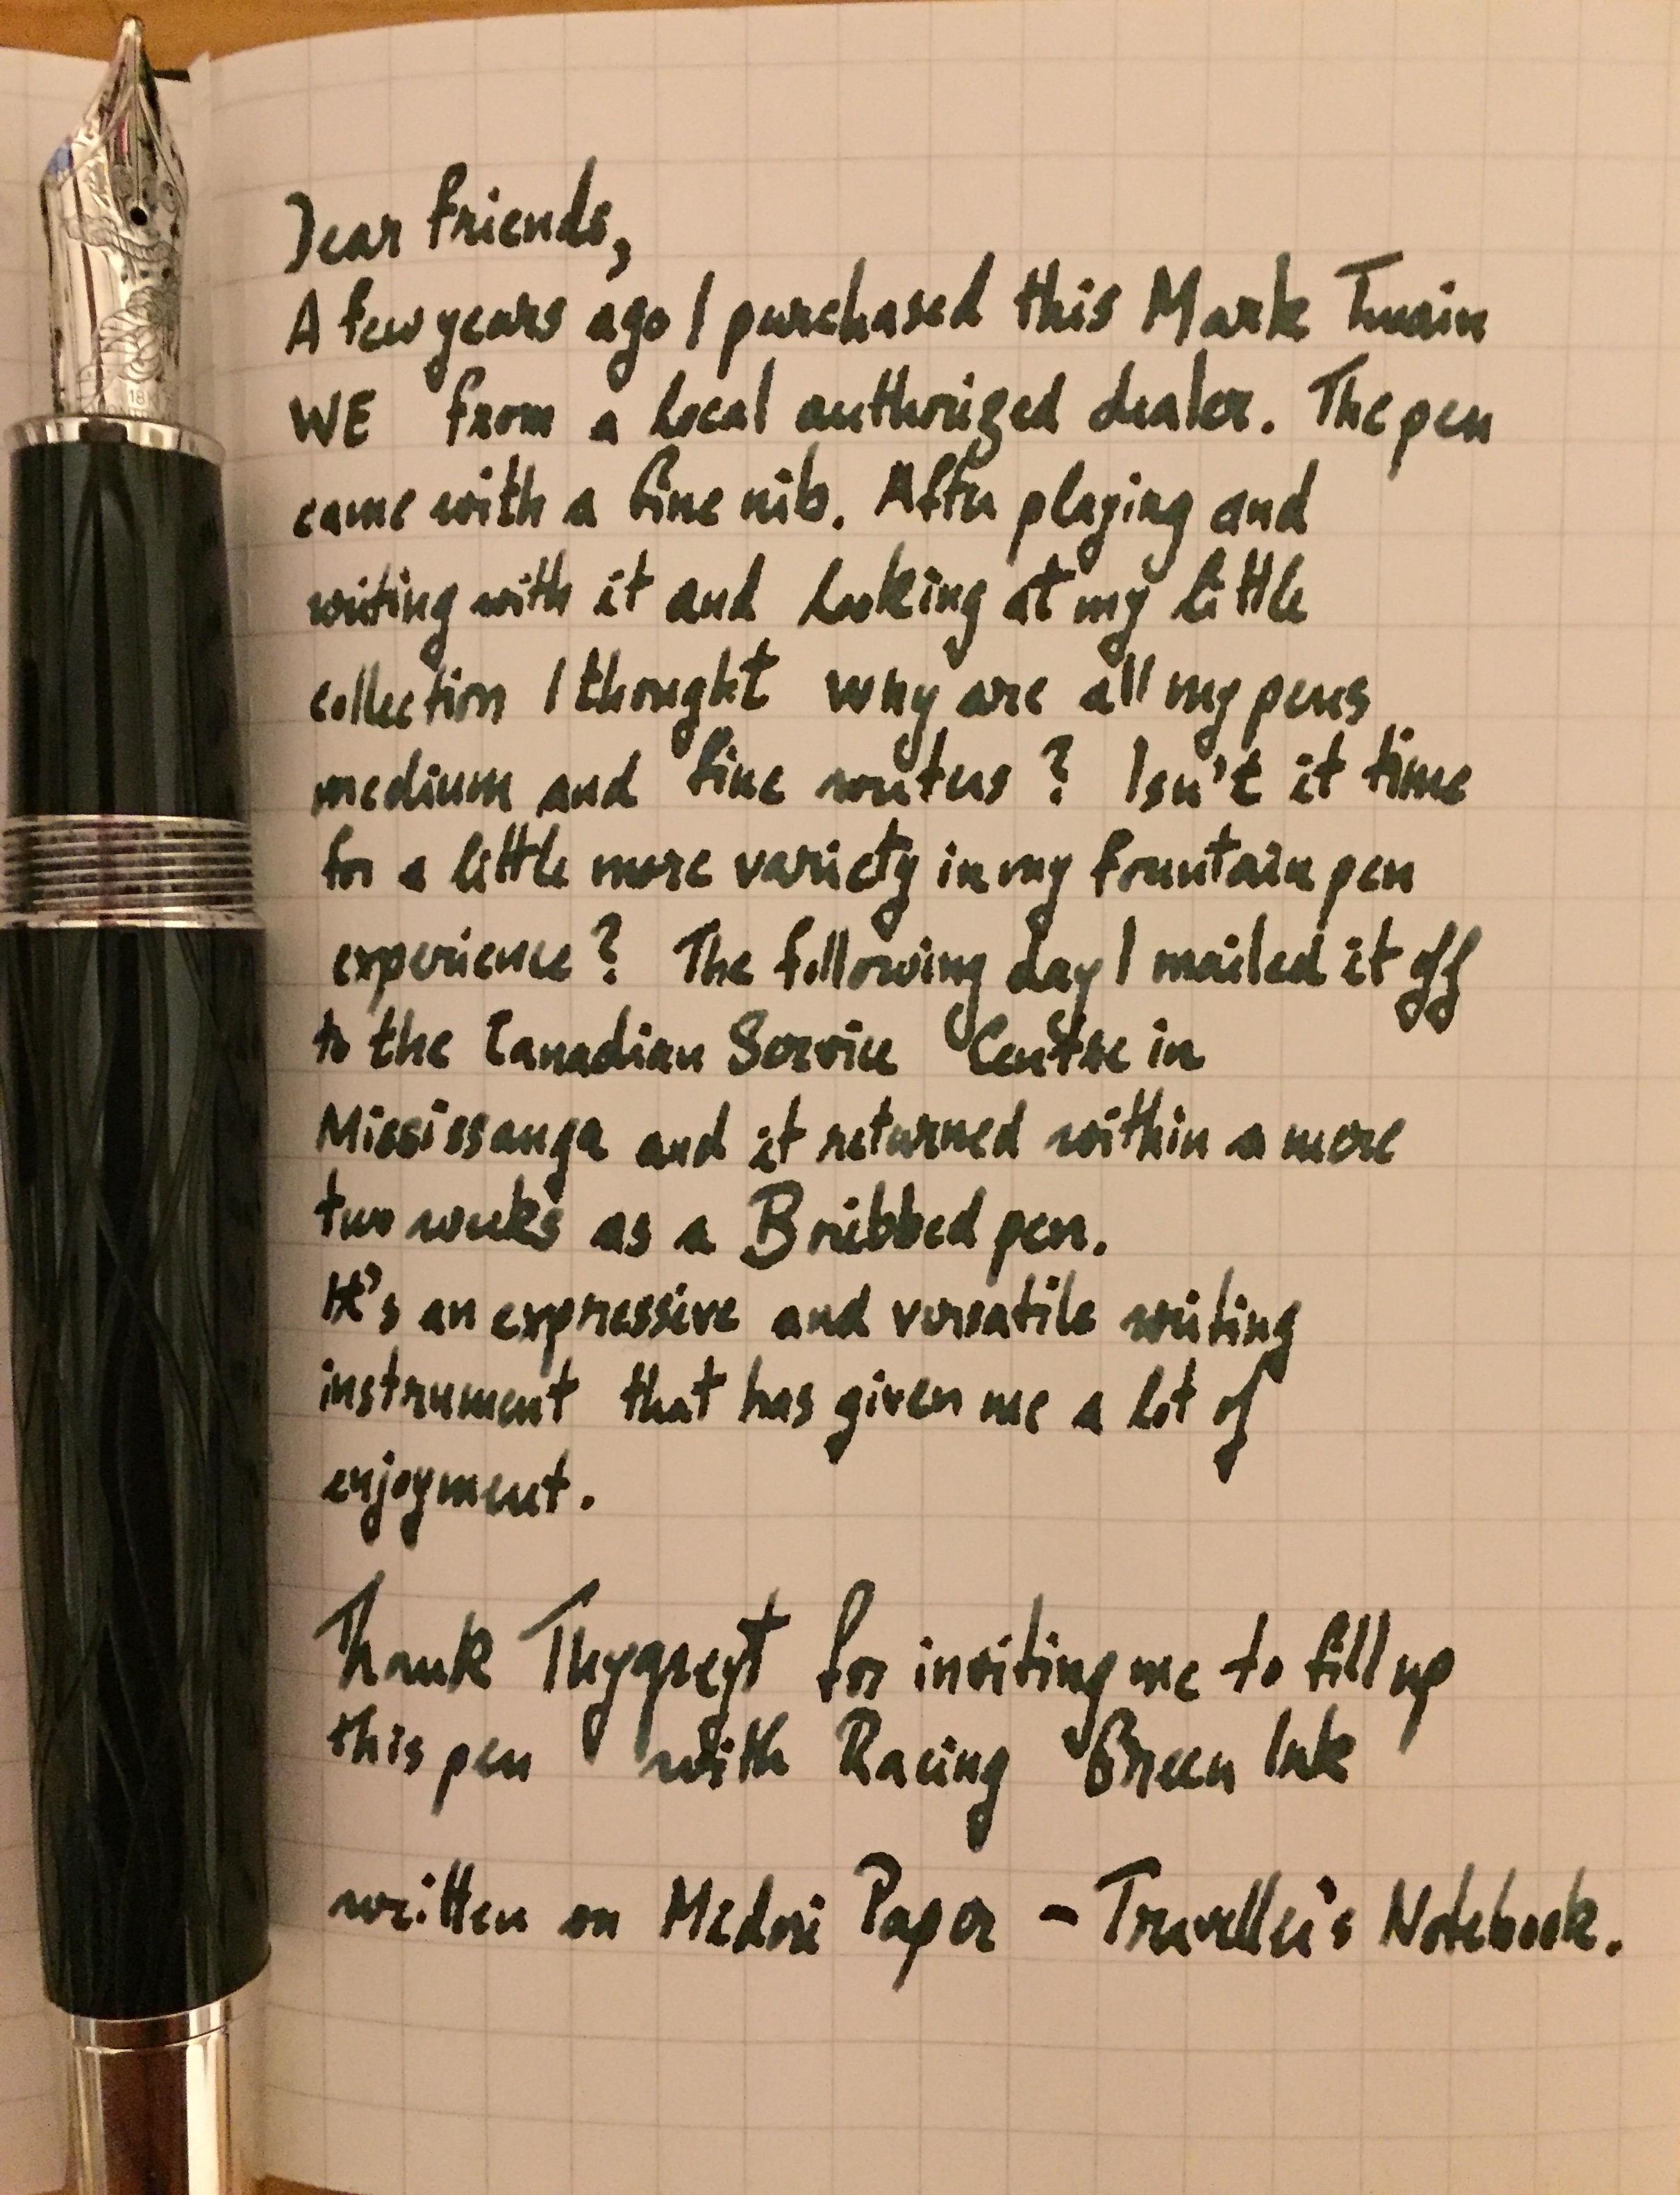 Dear friends,
A few years ago I purchased this Mark Twain
WE from a local authorized dealer. The pen
came with a fine nib. After playing and
writing with it and looking at my little
collection I thought why are all my pens
medium and fine writers? Isn't it time
for a little more variety in my fountain pen
experience? The following day I mailed it off
to the Canadian Service Centre in
Mississauga and it returned within a mere
two weeks as a B nibbed pen.
It's an expressive and versatile writing
instrument that has given me a lot of
enjoyment.
Thank for inviting me to fill up
this pen with Racing Green Ink
written on Midori Paper - Traveller's Notebook.
18K